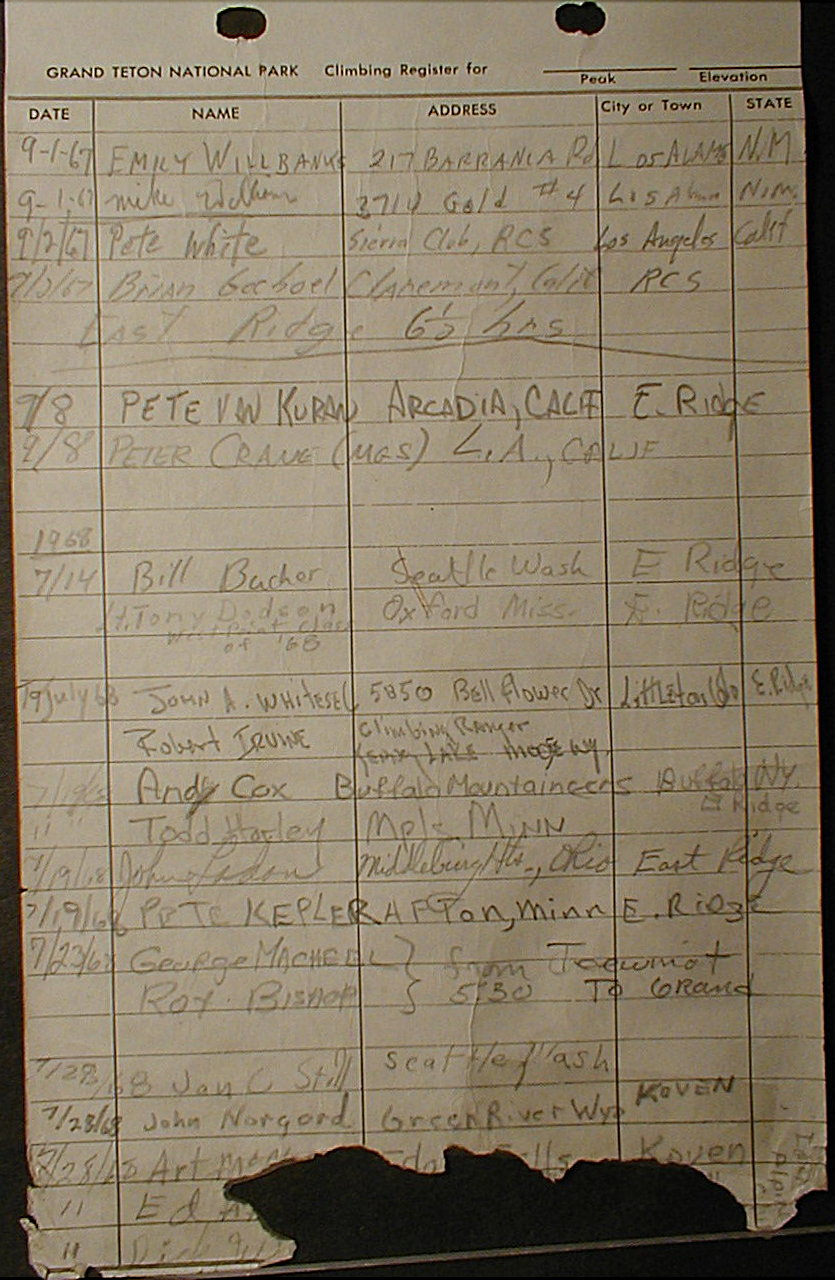 GRAND TETON NATIONAL PARK Climbing Register for
Peak Elevation
DATE NAME ADDRESS City or Town STATE
9-1-67 EMILY WILLBANKS 217 BARRANCA Rd LOS ALAMOS N.M.
9-1-67 mike #4 N.M.
9/2/67 Pete White Sierra Club, RCS Los Angeles Calif
Brian Claremont, Calif RCS
East Ridge 6½ hrs
9/8 PETE VAN KURAN ARCADIA, CALIF E. Ridge
9/8 PETER CRANE L.A., CALIF
1968
7/14 Bill Bucher Seattle Wash E Ridge
Lt. Tony Dodson Oxford Miss. E. Ridge
West Point Class
of '68
19 July 68 JOHN A. WHITESEL 5850 Bellflower Dr Littleton Colo E. Ridge
Robert IRVINE Climbing Ranger
JENNY LAKE MOOSE WY.
7/19/68 Andy Cox Buffalo Mountaineers Buffalo NY.
E Ridge
" " Todd Mpls MINN
7/19/68 John Middleburg Hts., Ohio East Ridge
7/19/68 PETE KEPLER AFTon, Minn E. Ridge
7/23/68 George } from Teewinot
Roy BISHOP } 5:30 TO GRAND
7/28/68 Jan C Still Seattle Wash
7/28/68 John Norgord Green River Wyo KOVEN
7/28/68 Art Koven
" Ed
" Dick